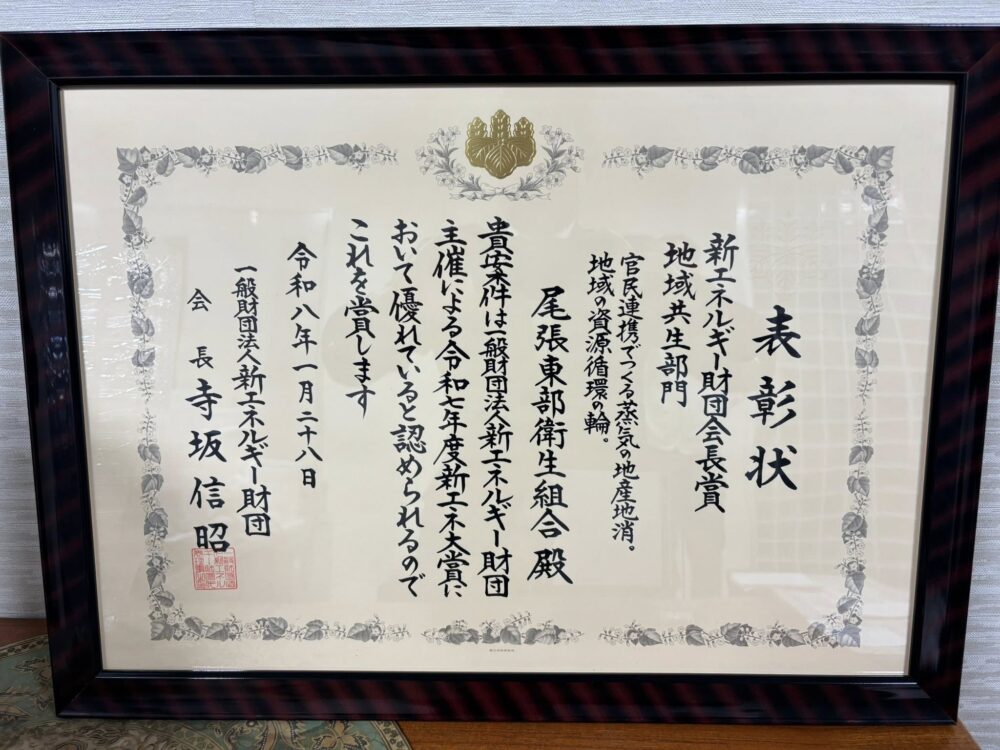 表彰状
新エネルギー財団会長賞
地域共生部門
官民連携でつくる蒸気の地産地消。
地域の資源循環の輪。
尾張東部衛生組合殿
貴案件は一般財団法人新エネルギー財団
主催による令和七年度新エネ大賞に
おいて優れていると認められるので
これを賞します
令和八年一月二十八日
一般財団法人新エネルギー財団
会長 寺坂信昭